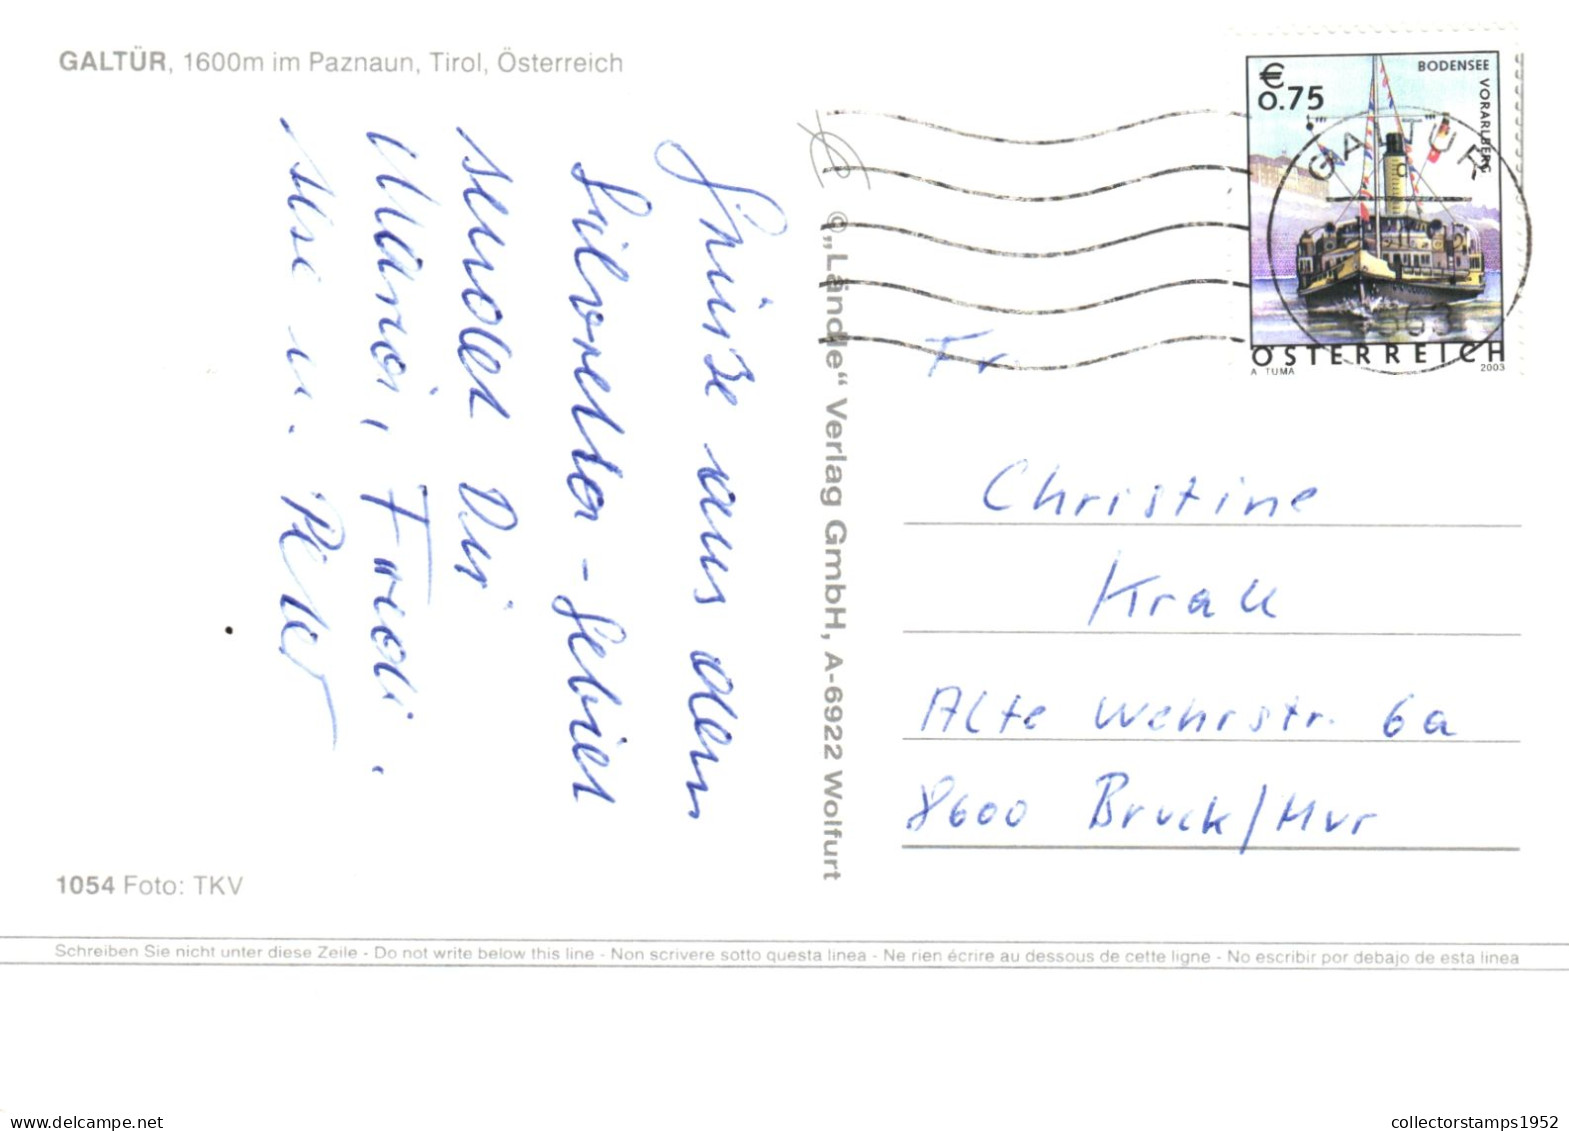 GALTÜR, 1600m im Paznaun, Tirol, Österreich
Grüße aus dem
Silvretta-Gebiet
sendet Dir
Mami, Friedi,
Ilse u. Peter
1054 Foto: TKV
©„Ländle“ Verlag GmbH, A-6922 Wolfurt
€
0.75
BODENSEE
VORARLBERG
GALTÜR
ÖSTERREICH
A. TUMA
2003
Fr
Christine
Krall
Alte Wehrstr. 6a
8600 Bruck/Mur
Schreiben Sie nicht unter diese Zeile - Do not write below this line - Non scrivere sotto questa linea - Ne rien écrire au dessous de cette ligne - No escribir por debajo de esta linea
collectorstamps1952